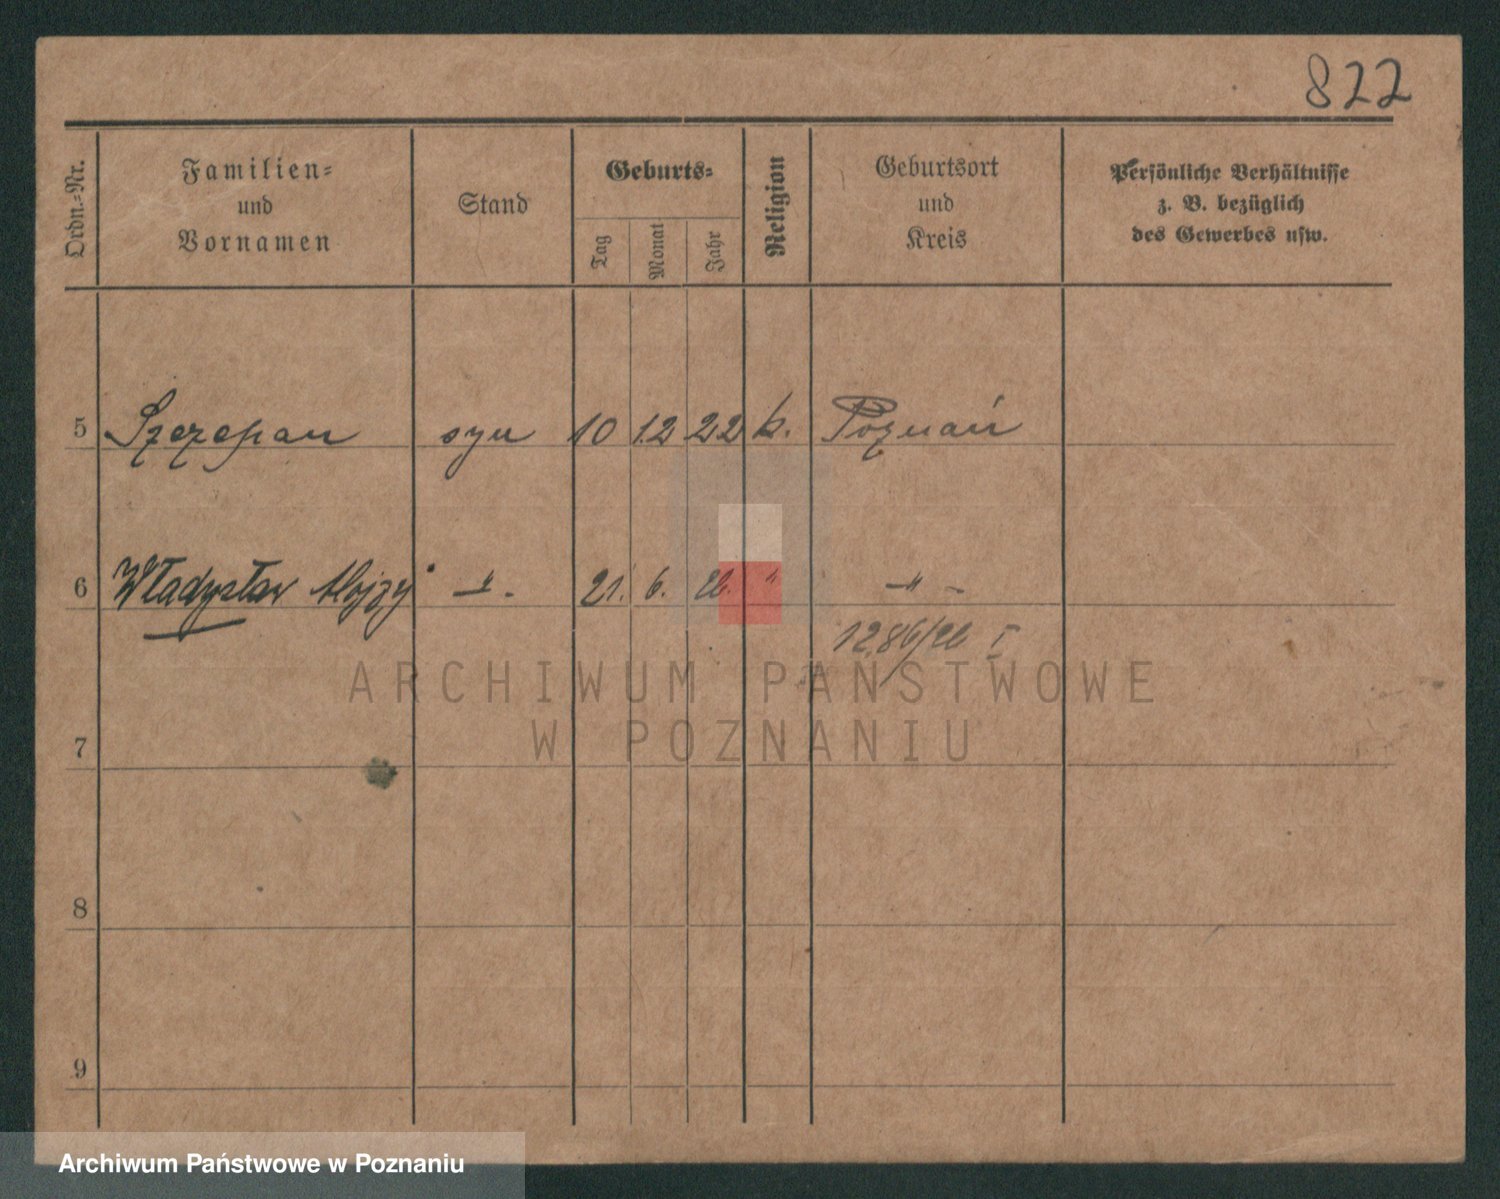 822
Ordn.-Nr.
Familien-
und
Vornamen
Stand
Geburts-
Tag
Monat
Jahr
Religion
Geburtsort
und
Kreis
Persönliche Verhältnisse
z. B. bezüglich
des Gewerbes usw.
5 Szczepan syn 10 12 22 k. Poznań
6 Władysław Alojzy -"- 21. 6. 26. " -"-
1286/26 I
ARCHIWUM PAŃSTWOWE
W POZNANIU
7
8
9
Archiwum Państwowe w Poznaniu